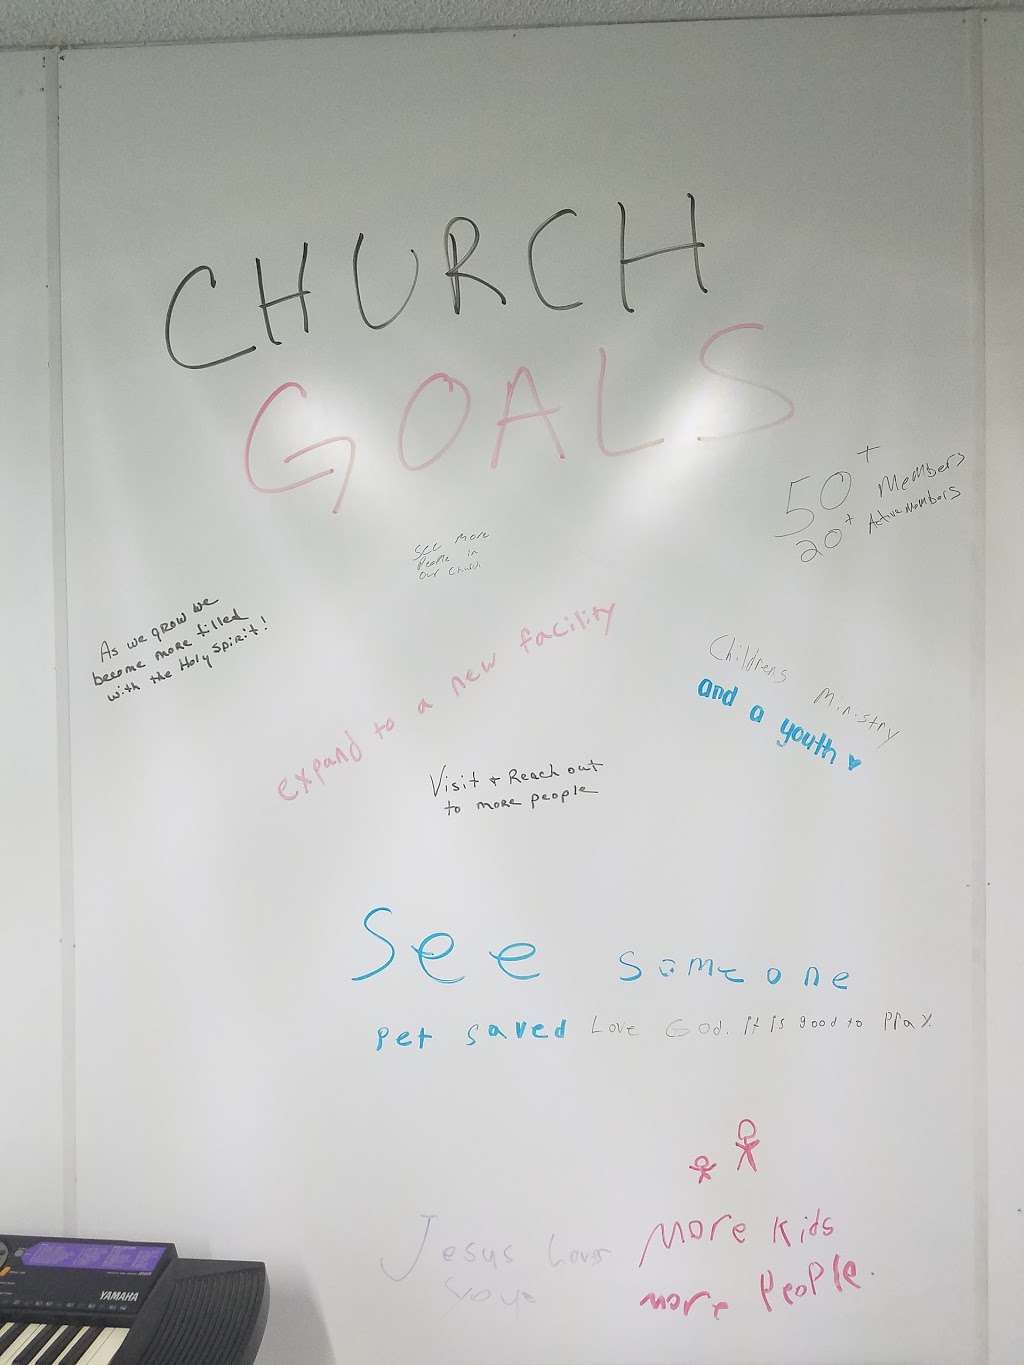 CHURCH
GOALS
50+ Members
20+ Active Members
See More
People in
Our Church
As we grow we
become more filled
with the Holy Spirit!
expand to a new facility
Childrens Ministry
and a youth
Visit + Reach out
to more people
See someone
get saved Love God. It is good to Pray.
Jesus Loves
you
More Kids
more People.
YAMAHA